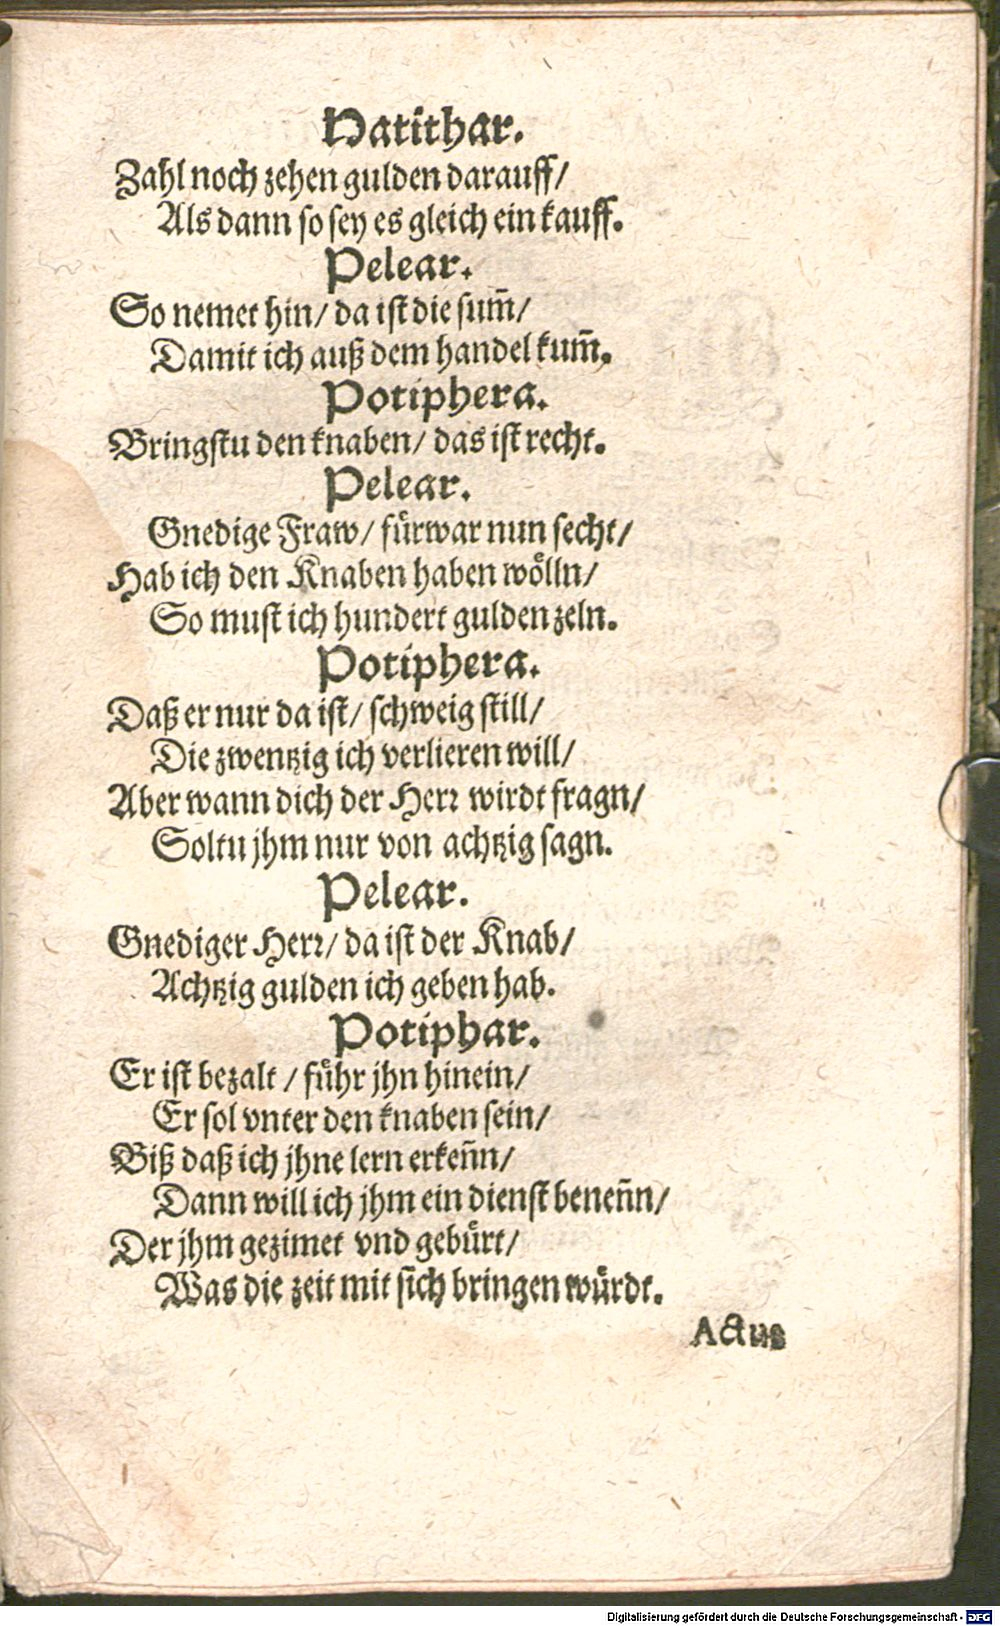 Natithar.
Zahl noch zehen gulden darauff/
Als dann so sey es gleich ein kauff.
Pelear.
So nemet hin/ da ist die sum̃/
Damit ich auß dem handel kum̃.
Potiphera.
Bringstu den knaben/ das ist recht.
Pelear.
Gnedige Fraw/ fuͤrwar nun secht/
Hab ich den Knaben haben woͤlln/
So must ich hundert gulden zeln.
Potiphera.
Daß er nur da ist/ schweig still/
Die zwentzig ich verlieren will/
Aber wann dich der Herꝛ wirdt fragn/
Soltu jhm nur von achtzig sagn.
Pelear.
Gnediger Herꝛ/ da ist der Knab/
Achtzig gulden ich geben hab.
Potiphar.
Er ist bezalt / fuͤhr jhn hinein/
Er sol vnter den knaben sein/
Biß daß ich jhne lern erken̄n/
Dann will ich jhm ein dienst benen̄n/
Der jhm gezimet vnd gebuͤrt/
Was die zeit mit sich bringen wuͤrdt.
Actus
Digitalisierung gefördert durch die Deutsche Forschungsgemeinschaft - DFG